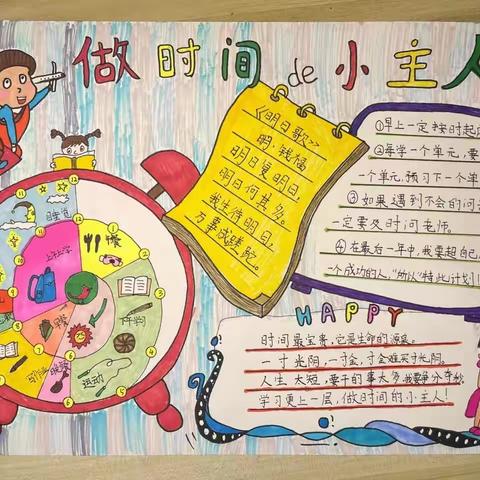 做时间de小主人
《明日歌》
明·钱福
明日复明日，
明日何其多。
我生待明日，
万事成蹉跎。
①早上一定按时起
②每学一个单元，要
一个单元，预习下一个单
③如果遇到不会的问
一定要及时问老师。
④在最后一年中，我要超自己
一个成功的人，"所以"特此计划！
HAPPY
时间最宝贵，它是生命的源泉。
一寸光阴，一寸金，寸金难买寸光阴。
人生太短，要干的事太多，我要争分夺秒
学习更上一层，做时间的小主人！
上午上学
午餐
午间
运动
晚餐
12
11
10
9
8
7
6
5
4
3
2
1